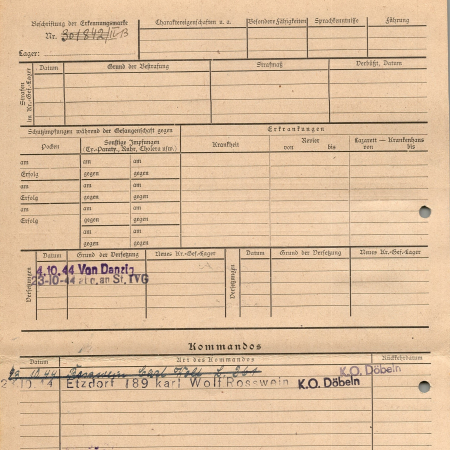 Beschriftung der Erkennungsmarke
Nr. 301842/IVB
Lager:
Charaktereigenschaften u. a.
Besondere Fähigkeiten
Sprachkenntnisse
Führung
Strafen im Kr.-Gef.-Lager
Datum
Grund der Bestrafung
Strafmaß
Verbüßt, Datum
Schutzimpfungen während der Gefangenschaft gegen
Erkrankungen
Pocken
Sonstige Impfungen
(Ty.-Paraty., Ruhr, Cholera usw.)
Krankheit
Revier
von bis
Lazarett — Krankenhaus
von bis
am am am
Erfolg gegen gegen
am am am
Erfolg gegen gegen
am am am
Erfolg gegen gegen
am am
gegen gegen
Versetzungen
Datum Grund der Versetzung Neues Kr.-Gef.-Lager
4.10.44 Von Danzig
3-10-44 an St. IVG
Versetzungen
Datum Grund der Versetzung Neues Kr.-Gef.-Lager
Kommandos
Datum Art des Kommandos Rückkehrdatum
10 44 Rosswein Carl Wolf
Etzdorf 189 karl Wolf Rosswein K.O. Döbeln
K.O. Döbeln